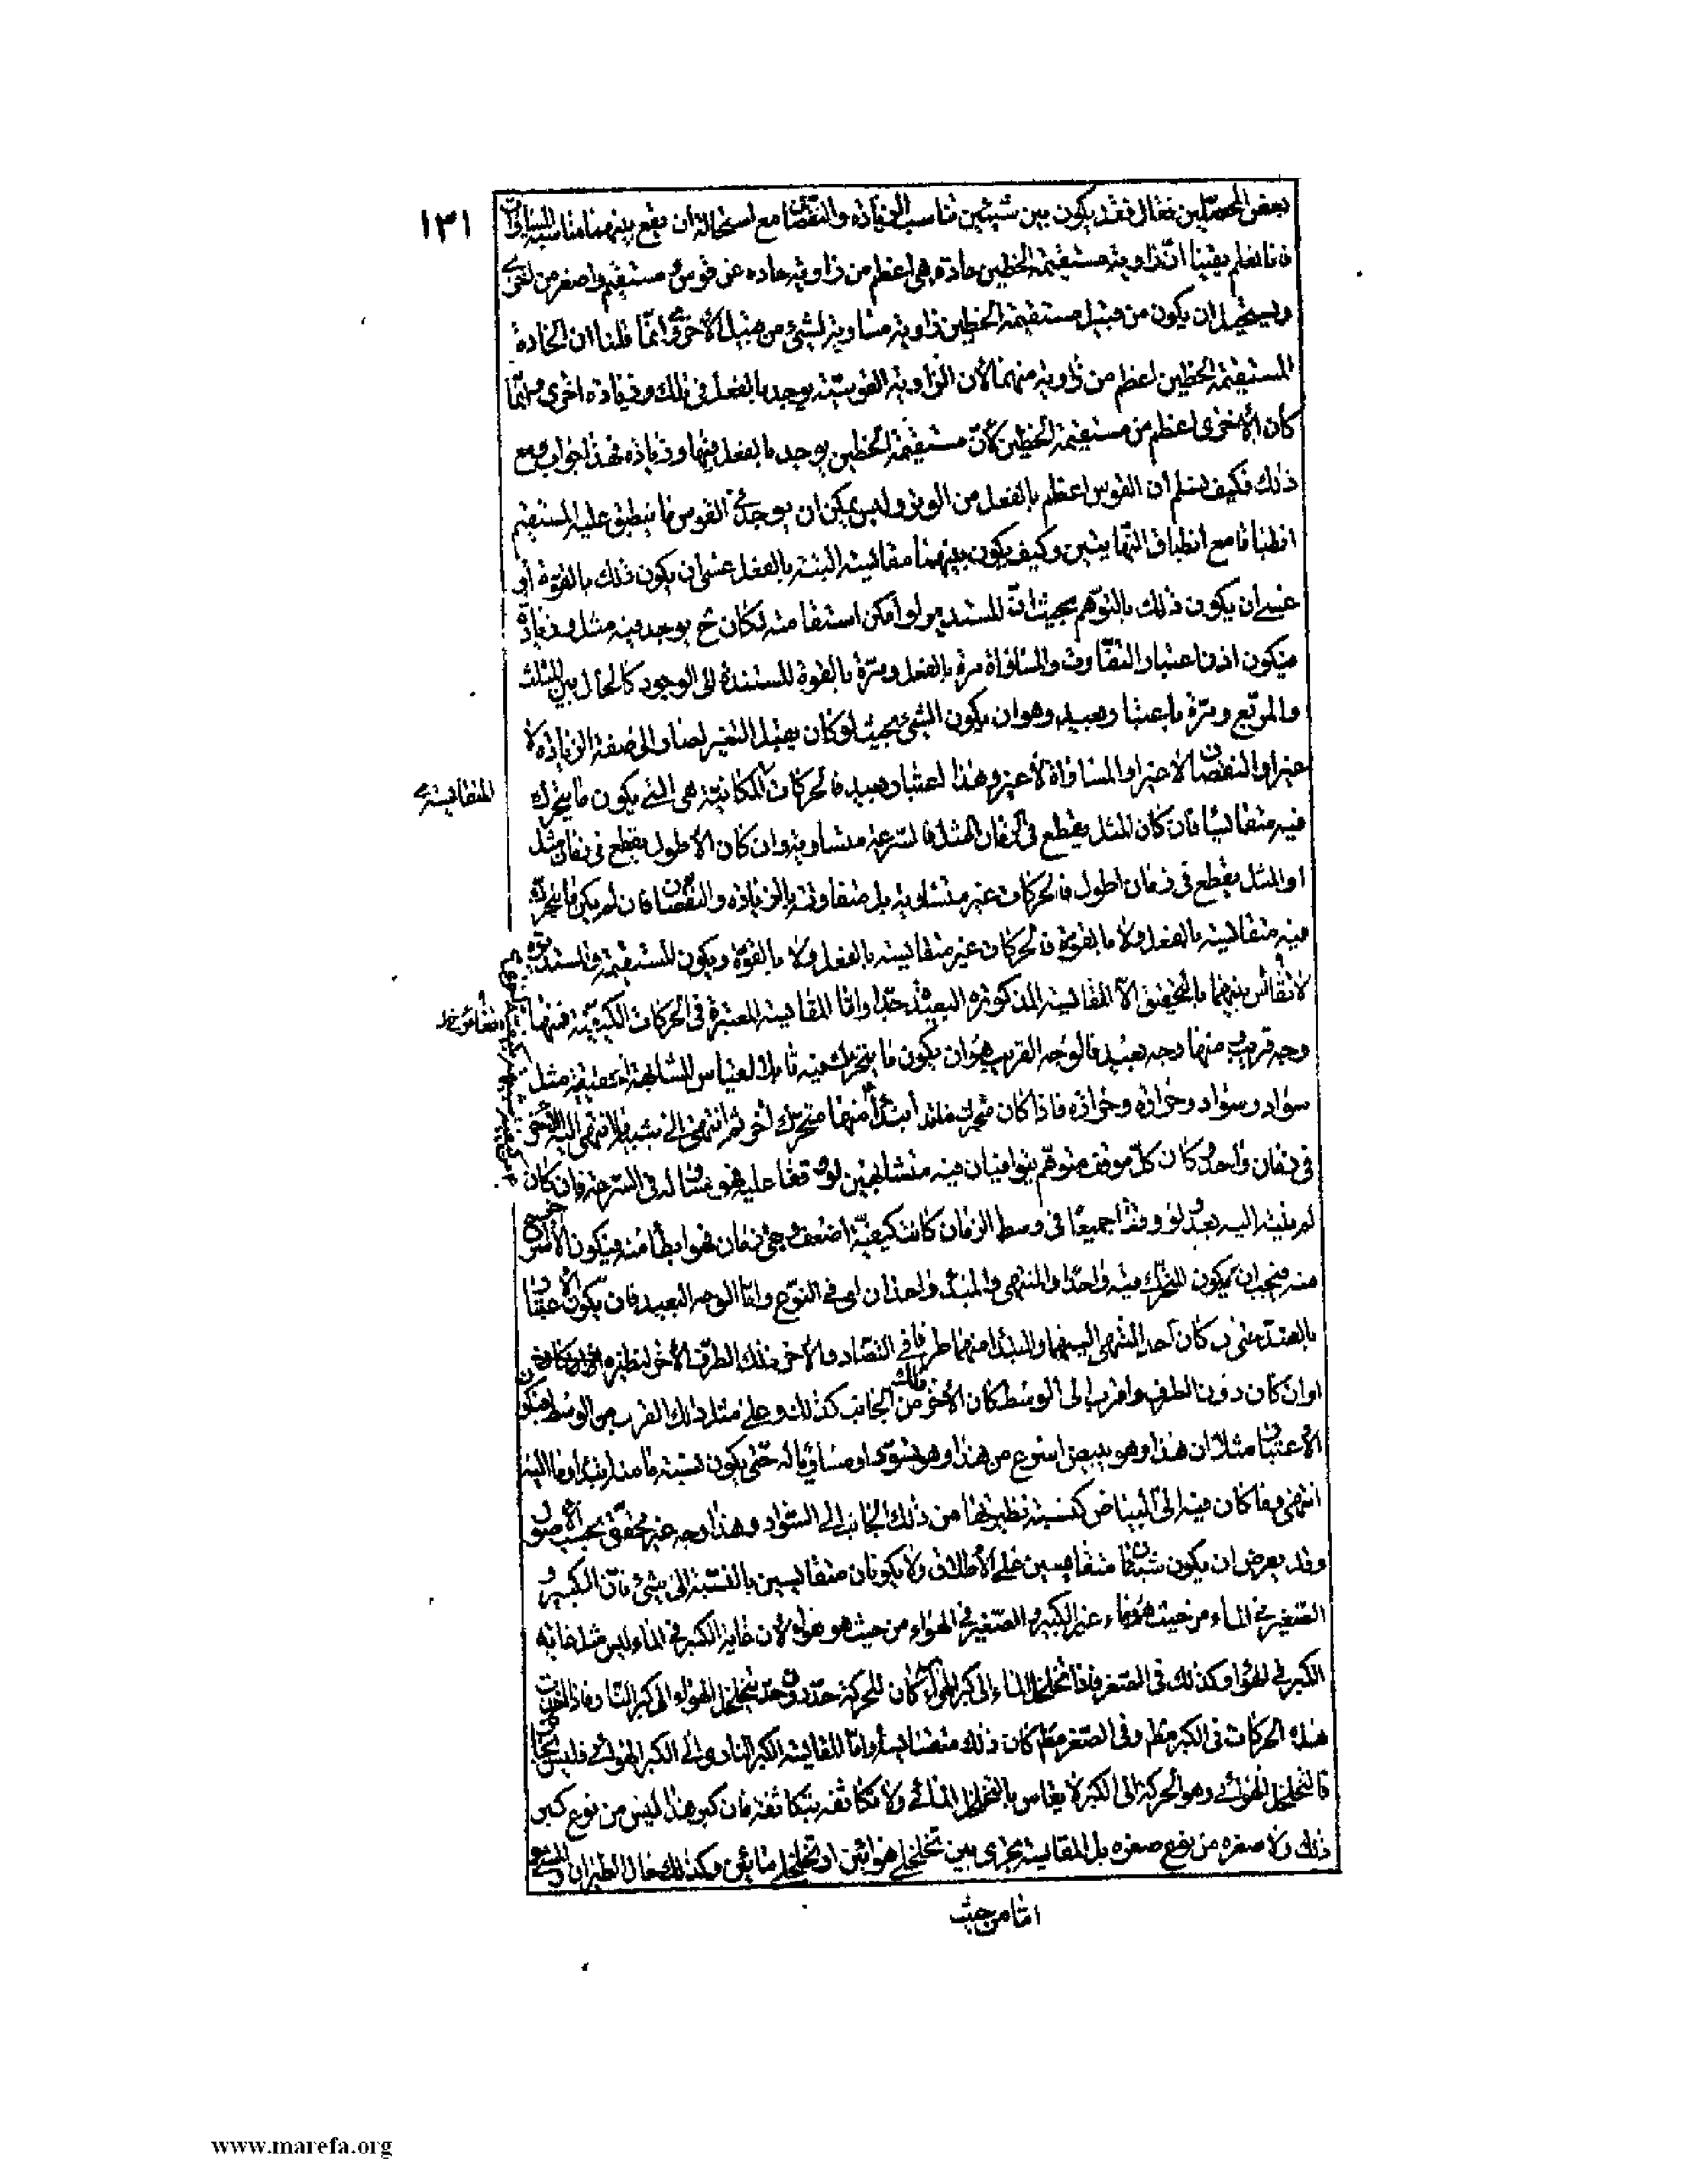 ١٣١
بعض المحصلين فقال فقد يكون بين شيئين تناسب الزيادة والنقصان مع استحالة ان يقع بينهما مناسبة المساواة
فانا نعلم يقينا ان زاوية مستقيمة الخطين حادة هى اعظم من زاوية حادة عن قوس مستقيم واصغر من اخرى
ويستحيل ان يكون من قبيل مستقيمة الخطين زاوية مساوية لشئ من قبيل الأخرى وانما قلنا ان الحادة
المستقيمة الخطين اعظم من زاوية منهما لأن الزاوية القوسية يوجد بالفعل فى تلك وزيادة اخرى وانما
كان الأخرى اعظم من مستقيمة الخطين لأن مستقيمة الخطين يوجد بالفعل فيها وزيادة فهذا جواب ومع
ذلك فكيف يسلم ان القوس اعظم بالفعل من الوتر وليس يمكن ان يوجد فى القوس ما ينطبق عليه المستقيم
انطباقا مع انطباق النهايتين وكيف يكون بينهما مقايسة البتة بالفعل عسى ان يكون ذلك بالقوة او
عسى ان يكون ذلك بالتوهم بحيث ان المستدير لو امكن استقامته لكان ح يوجد فيه مثل وزيادة
فيكون اذن اعتبار التفاوت والمساواة مرة بالفعل ومرة بالقوة المستندة الى الوجود كالحال بين المثلث
والمربع ومرة باعتبار بعيد وهو ان يكون الشئ بحيث لو كان يقبل التغير لصار الى صفة الزيادة لا
غير او النقصان لا غير او المساواة لا غير وهذا اعتبار بعيد فالحركات المكانية هى التى يكون ما يتحرك
المتقايسة
فيه متقايسا فان كان المثل يقطع فى الزمان المثل فالسرعة متساوية وان كان الأطول يقطع فى زمان مثل
او المثل يقطع فى زمان اطول فالحركات غير متساوية بل متفاوتة بالزيادة والنقصان فان لم يكن ما يتحرك
فيه متقايسة بالفعل ولا بالقوة فالحركات غير متقايسة بالفعل ولا بالقوة ويكون المستقيمة والمستديرة
لا تقائس بينهما بالتحقيق الا المقايسة المذكورة البعيدة جدا واما المقايسة المعتبرة فى الحركات الكيفية فمنها
وجه قريب ومنها وجه بعيد فالوجه القريب هو ان يكون ما يتحرك فيه قابلا لقياس المشابهة الحقيقية مثل
سواد وسواد وحرارة وحرارة فاذا كان متحرك قد ابتدأ منها متحرك آخر ثم انتهى الى شبيه ما انتهى اليه الآخر
فى زمان واحد وكان كل موقف متوهم يتوافيان فيه متشابهين لو وقفا عليه فهو مساو له فى السرعة وان كان
لم ينته اليه بعد ولو وقفا جميعا فى وسط الزمان كانت كيفية اضعف فى زمان فهو ابطأ منه ويكون الأسرع
منه فيجب ان يكون المتحرك فيه واحدا والمنتهى والمبدأ واحدان اى فى النوع واما الوجه البعيد فان يكون الاعتبار
بالضد حتى كان احد المنتهى اليهما والمبتدا منهما طرفا فى التضاد والآخر ذلك الطرف الآخر
او ان كان دون الطرف واقرب الى الوسط كان الآخر من ذلك الجانب كذلك وعلى مثل ذلك القرب من الوسط فيكون
الاعتبار مثلا ان هذا وهو يبيض اسرع من هذا وهو يسود او مساويا له حتى يكون نسبة ما منه ابتدأ وما اليه
انتهى وما كان فيه الى البياض كنسبة نظيرتها من ذلك الجانب الى السواد وهذا وجه غير محقق بحسب الأصول
وقد يعرض ان يكون شيئان متقايسين على الاطلاق ولا يكونان متقايسين بالنسبة الى شئ فان الكبير و
الصغير فى الماء من حيث هو ماء غير الكبير والصغير فى الهواء من حيث هو هواء لأن غاية الكبر فى الماء ليس مثل غاية
الكبر فى الهواء وكذلك فى الصغر فاذا تخلخل الماء الى كبر الهواء كان للحركة حد دون حد تخلخل الهواء الى كبر النار فاذا اخذت
هذه الحركات فى الكبر مطلقا وفى الصغر مطلقا كان ذلك متقايسا واما المقايسة الكبر النارى الى الكبر الهوائى فليس
فالتخلخل الهوائى وهو الحركة الى الكبر لا يقاس بالتخلخل المائى ولا تكاثفه بتكاثفه فان كبر هذا ليس من نوع كبر
ذلك ولا صغره من نوع صغره بل المقايسة تجرى بين تخلخل هوائين او تخلخل مائين وكذلك حال الطيران و
اما من حيث
www.marefa.org